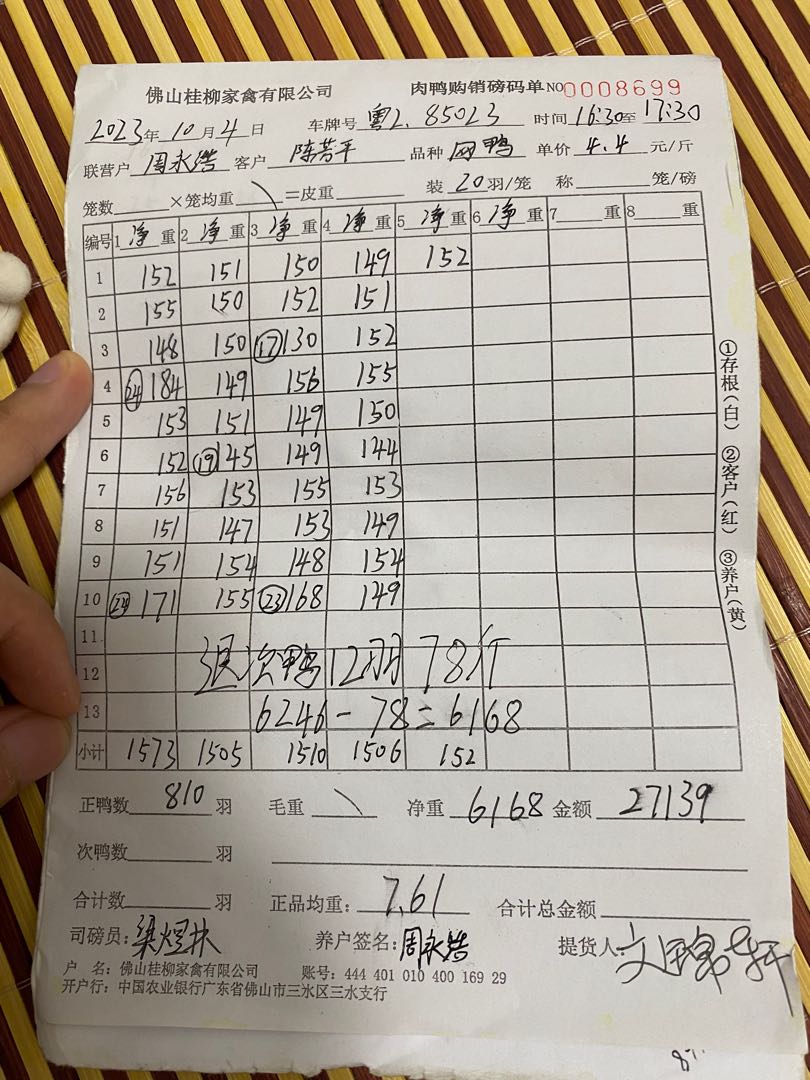 佛山桂柳家禽有限公司 肉鸭购销磅码单 NO 0008699
2023年10月4日 车牌号 粤Z.85023 时间 16:30至17:30
联营户 周永浩 客户 陈芳平 品种 网鸭 单价 4.4 元/斤
笼数 ×笼均重 \ =皮重 装 20 羽/笼 称 笼/磅
编号 1 净 重 2 净 重 3 净 重 4 净 重 5 净 重 6 净 重 7 重 8 重
1 152 151 150 149 152
2 155 150 152 151
3 148 150 ⑰130 152
4 ㉔184 149 156 155
5 153 151 149 150
6 152 ⑲145 149 144
7 156 153 155 153
8 151 147 153 149
9 151 154 148 154
10 ㉔171 155 ㉓168 149
11
12 退次鸭12羽 78斤
13 6246-78=6168
小计 1573 1505 1510 1506 152
正鸭数 810 羽 毛重 \ 净重 6168 金额 27139
次鸭数 羽
合计数 羽 正品均重: 7.61 合计总金额
司磅员: 梁煜林 养户签名: 周永浩 提货人:
户 名: 佛山桂柳家禽有限公司 账号: 444 401 010 400 169 29
开户行: 中国农业银行广东省佛山市三水区三水支行
①存根(白) ②客户(红) ③养户(黄)